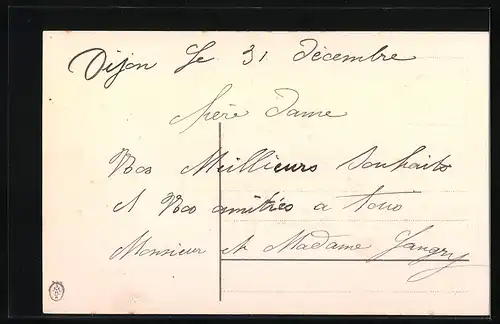 Dijon Le 31 Décembre
Chère Dame
Nos Meillieurs Souhaits
et Nos amitiés a tous
Monsieur et Madame Jangry